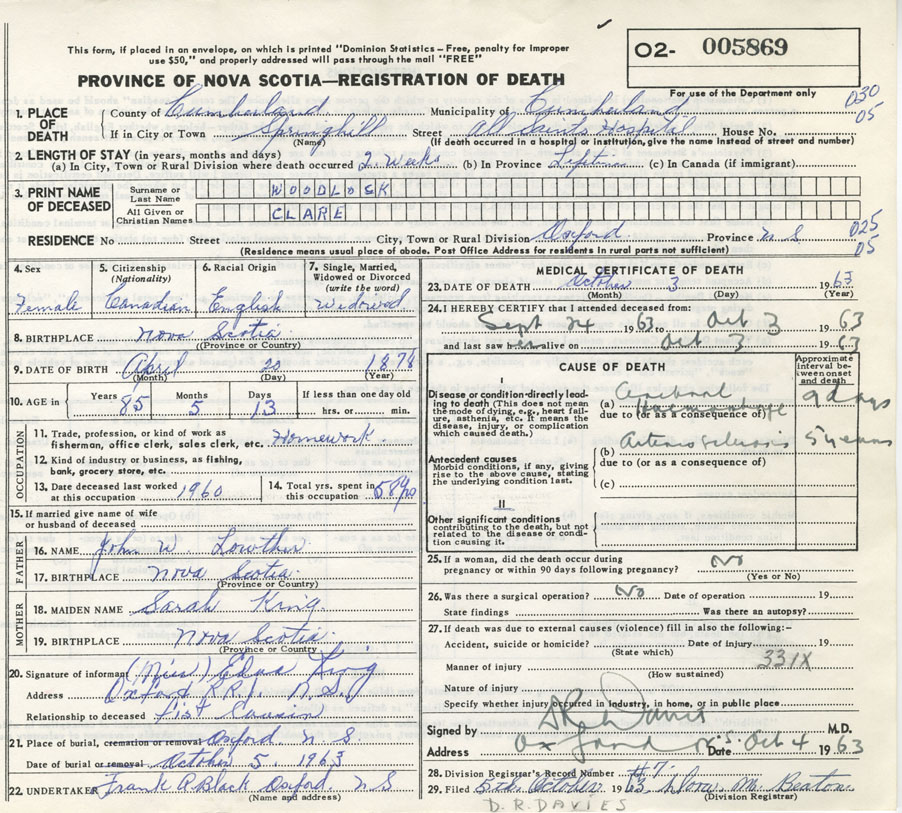 This form, if placed in an envelope, on which is printed "Dominion Statistics – Free, penalty for improper
use $50," and properly addressed will pass through the mail "FREE"
O2- 005869
PROVINCE OF NOVA SCOTIA—REGISTRATION OF DEATH
For use of the Department only
030
05
1. PLACE OF DEATH County of Cumberland Municipality of Cumberland
If in City or Town Springhill Street All Saints Hospital House No.
(Name) (If death occurred in a hospital or institution, give the name instead of street and number)
2. LENGTH OF STAY (in years, months and days)
(a) In City, Town or Rural Division where death occurred 2 Weeks (b) In Province Liftin (c) In Canada (if immigrant)
3. PRINT NAME OF DECEASED Surname or Last Name WOODLOSK
All Given or Christian Names CLARE
RESIDENCE No Street City, Town or Rural Division Oxford Province N S
025
05
(Residence means usual place of abode. Post Office Address for residents in rural parts not sufficient)
4. Sex Female
5. Citizenship (Nationality) Canadian
6. Racial Origin English
7. Single, Married, Widowed or Divorced (write the word) Widowed
8. BIRTHPLACE Nova Scotia
(Province or Country)
9. DATE OF BIRTH April 20 1878
(Month) (Day) (Year)
10. AGE in Years 85 Months 5 Days 13 If less than one day old hrs. or min.
OCCUPATION
11. Trade, profession, or kind of work as
fisherman, office clerk, sales clerk, etc. Homework
12. Kind of industry or business, as fishing,
bank, grocery store, etc.
13. Date deceased last worked at this occupation 1960
14. Total yrs. spent in this occupation 58 yrs
15. If married give name of wife
or husband of deceased
FATHER
16. NAME John W. Lowther
17. BIRTHPLACE Nova Scotia
(Province or Country)
MOTHER
18. MAIDEN NAME Sarah King
19. BIRTHPLACE Nova Scotia
(Province or Country
20. Signature of informant (Miss) Edna King
Address Oxford R.R.1. N.S.
Relationship to deceased Fist Cousin
21. Place of burial, cremation or removal Oxford N. S.
Date of burial or removal October 5, 1963
22. UNDERTAKER Frank P Black Oxford N S
(Name and address)
MEDICAL CERTIFICATE OF DEATH
23. DATE OF DEATH October 3 1963
(Month) (Day) (Year)
24. I HEREBY CERTIFY that I attended deceased from:
Sept 24 1963 to Oct 3 1963
and last saw h alive on Oct 3 1963
CAUSE OF DEATH
Approximate interval between onset and death
I
Disease or condition directly leading to death (This does not mean the mode of dying, e.g., heart failure, asthenia, etc. It means the disease, injury, or complication which caused death.)
(a) Cerebral Haemorrhage 9 days
due to (or as a consequence of)
Antecedent causes
Morbid conditions, if any, giving rise to the above cause, stating the underlying condition last.
(b) Arteriosclerosis 5 years
due to (or as a consequence of)
(c)
II
Other significant conditions
contributing to the death, but not related to the disease or condition causing it.
25. If a woman, did the death occur during
pregnancy or within 90 days following pregnancy? No
(Yes or No)
26. Was there a surgical operation? No Date of operation 19
State findings Was there an autopsy?
27. If death was due to external causes (violence) fill in also the following:-
Accident, suicide or homicide? Date of injury 19
(State which)
Manner of injury 331X
(How sustained)
Nature of injury
Specify whether injury occurred in industry, in home, or in public place
Signed by D R Davies M.D.
Address Oxford N.S. Date Oct 4 1963
28. Division Registrar's Record Number #7
29. Filed 5th October 1963 M. Beaton
(Division Registrar)
D.R. DAVIES